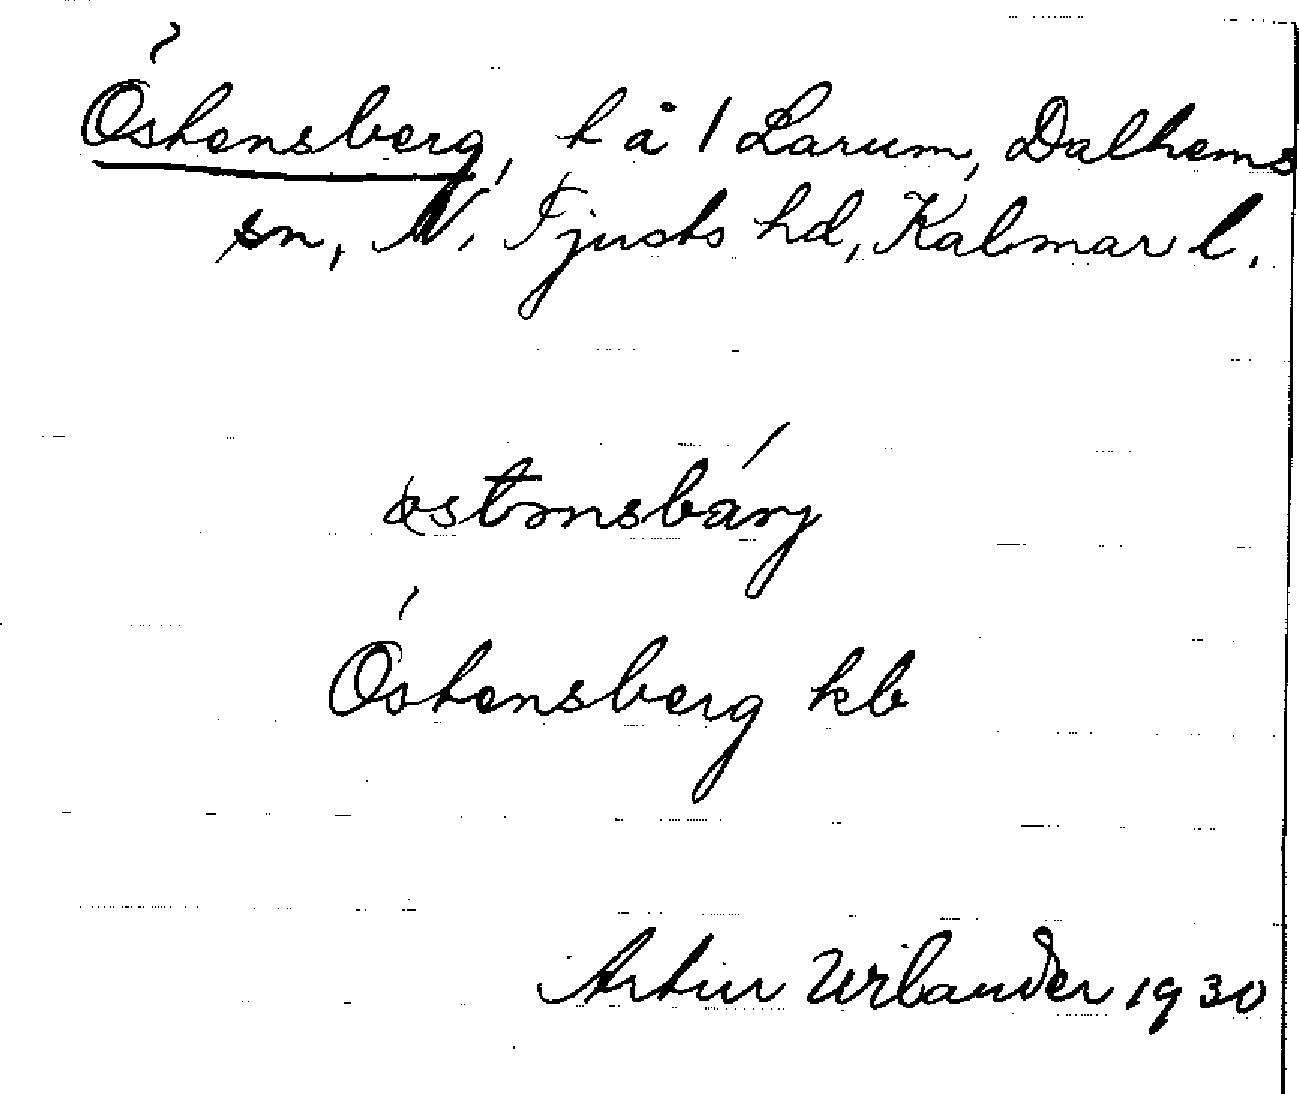 Östensberg, t å 1 Larum, Dalhems
sn, N. Tjusts hd, Kalmar l.
östənsbärj
Östensberg kb
Artur Urbander 1930